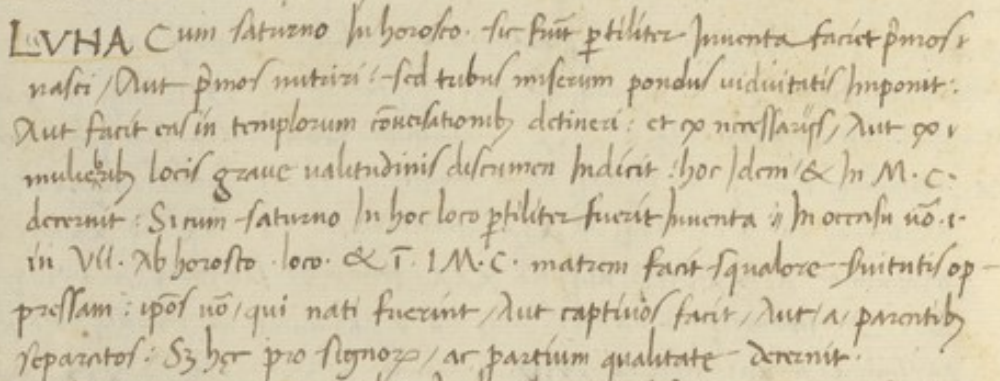 LVNA Cum saturno In horosco. sic fuīt ꝑtiliter Inventa faciet p̄mos t
nasci / Aut p̄mos nutriri : sed tubus miserum pondus viduitatis Imponit :
Aut facit eas in templorum cōversationibꝫ detineri : et ex necessarijs / Aut ex i
muliebribꝫ locis grave valitudinis discrimen Indicit : hoc Idem / & In M. C.
decernit : Si cum saturno In hoc loco ꝑtiliter fuerit Inventa ; In occasu vō. i.
in VII. Ab horosco . loco. & ī. I M. C. matrem facit squalore Servitutis op-
pressam : ipōs vō / qui nati fuerint / Aut captivos facit / Aut / a / parentibꝫ
separatos : Sꝫ hęc pro signoꝝ / ac partium qualitate decernit .